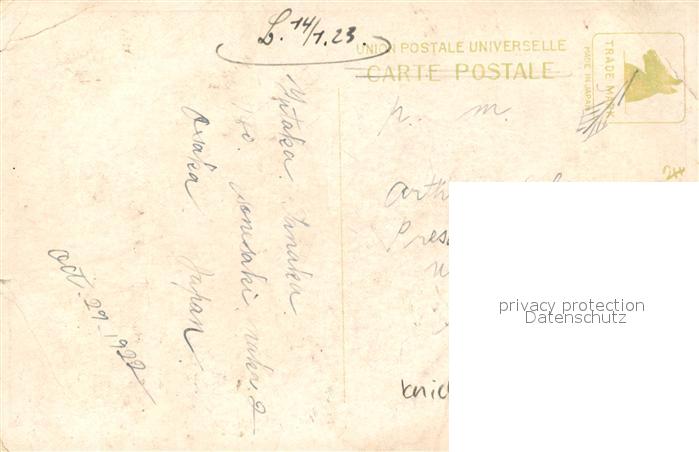 L. 14/1.23.
UNION POSTALE UNIVERSELLE
CARTE POSTALE
TRADE MARK
MADE IN JAPAN
p. m.
Yutaka. Tanaka.
Sonesaki naka 2
Osaka. Japan.
Oct. 29. 1922
Pres
privacy protection
Datenschutz